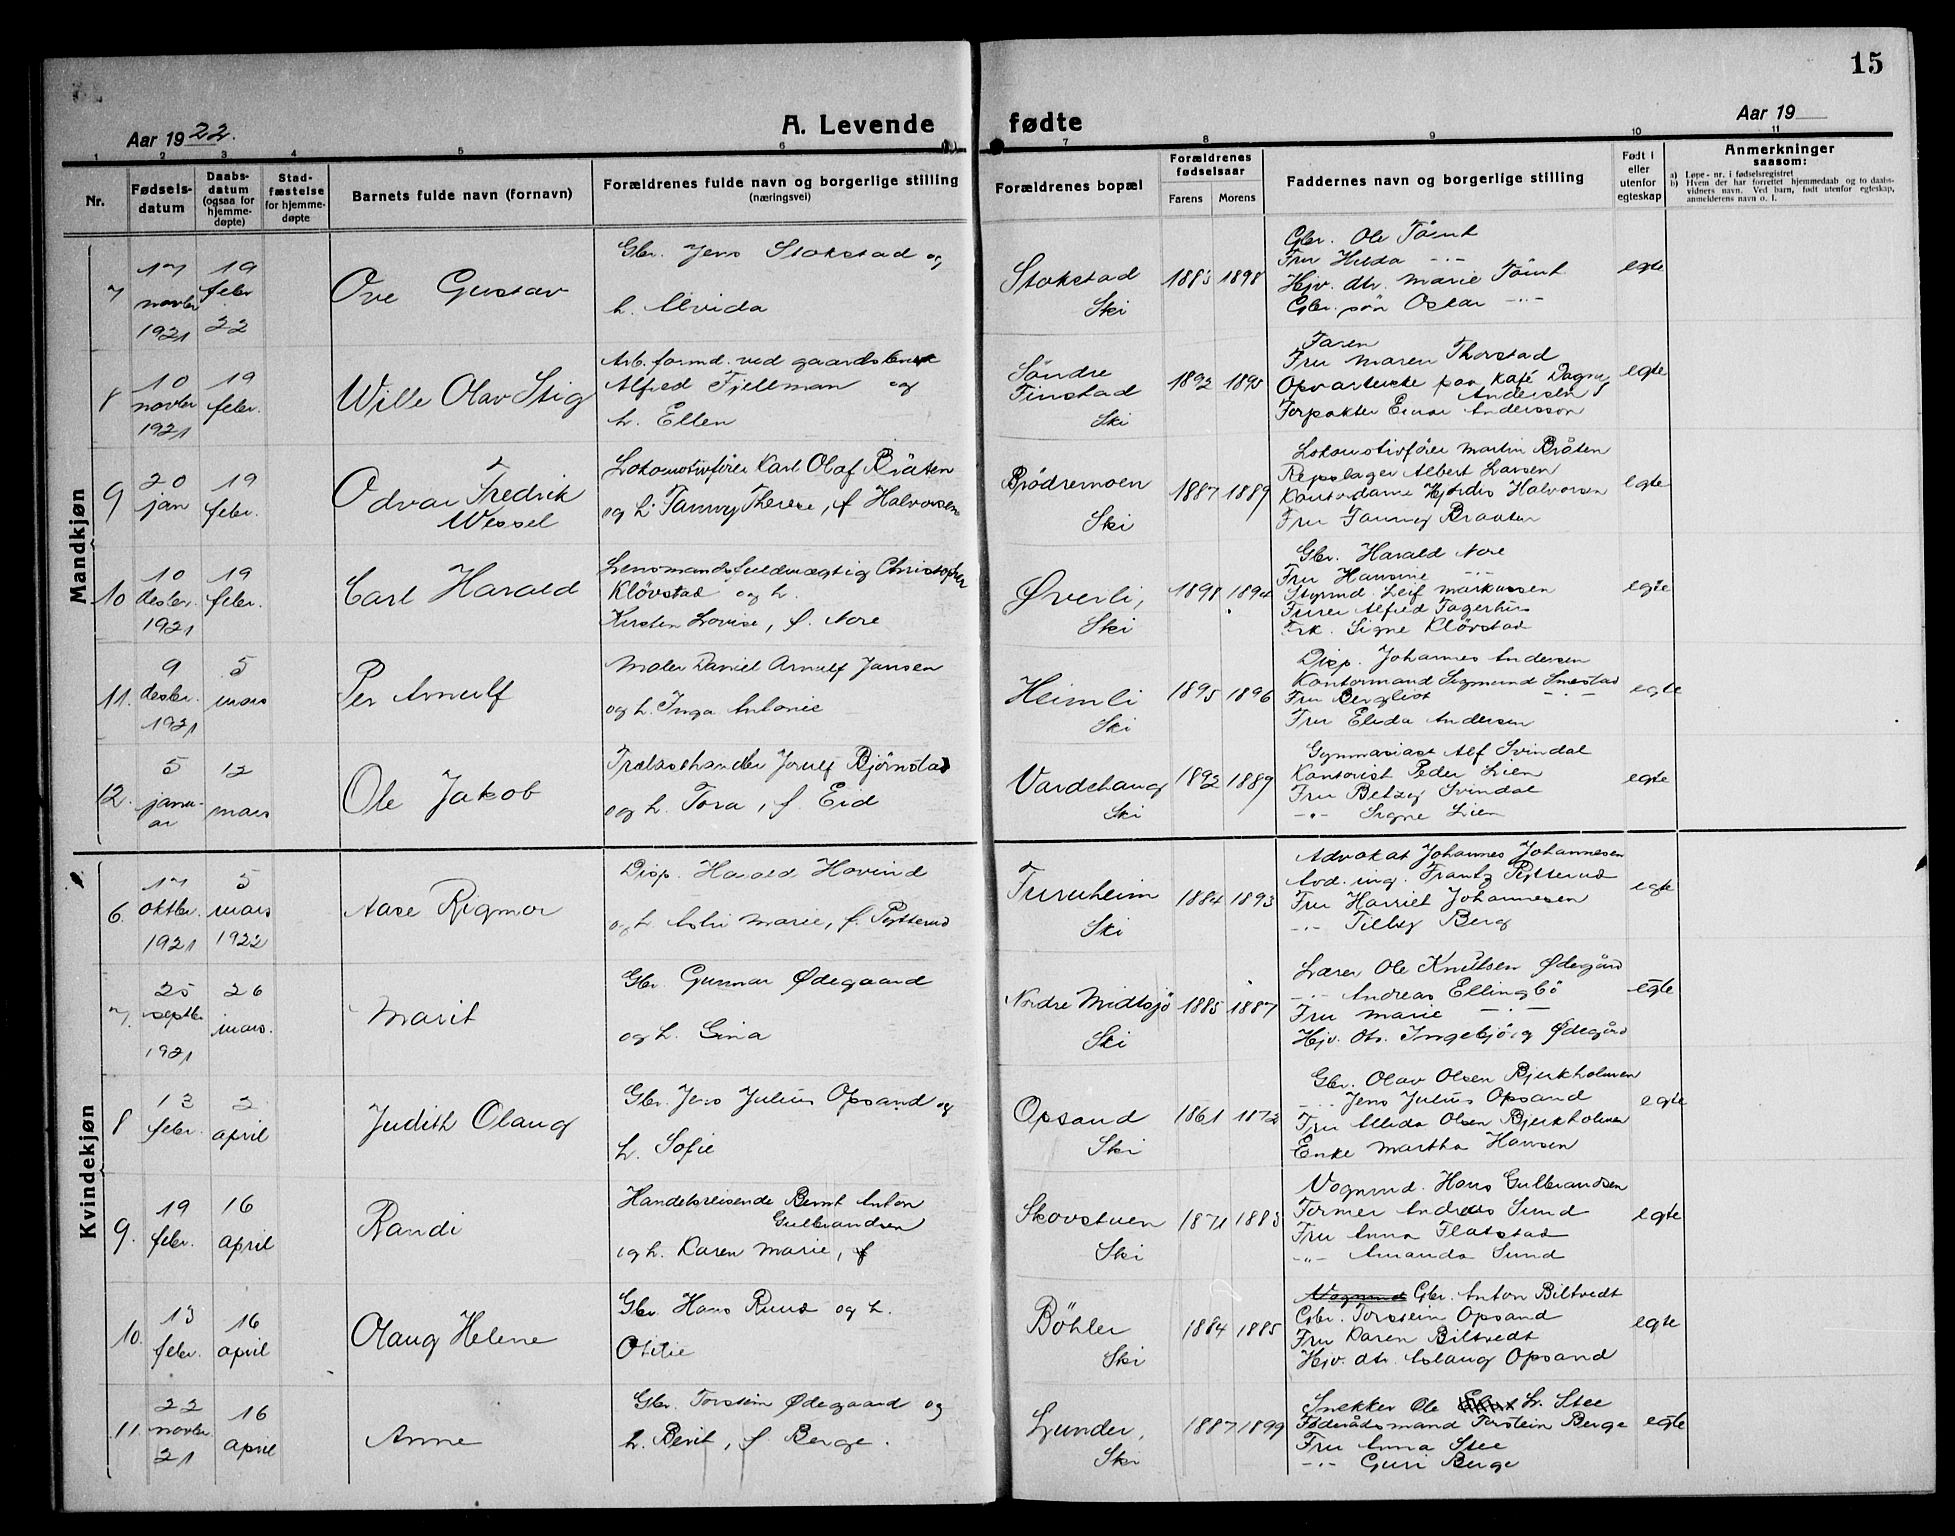 15
Aar 1922.
A. Levende fødte
Aar 19
1 2 3 4 5 6 7 8 9 10 11
Nr.
Fødsels-
datum
Daabs-
datum
(ogsaa for
hjemme-
døpte)
Stad-
fæstelse
for hjemme-
døpte
Barnets fulde navn (fornavn)
Forældrenes fulde navn og borgerlige stilling
(næringsvei)
Forældrenes bopæl
Forældrenes
fødselsaar
Farens Morens
Faddernes navn og borgerlige stilling
Født i
eller
utenfor
egteskap
Anmerkninger
saasom:
a) Løpe-nr. i fødselsregistret
b) Hvem der har forrettet hjemmedaab og to daabs-
vidners navn. Ved barn, født utenfor egteskap,
anmelderens navn o. l.
Mandkjøn
7
17
novbr
1921
19
febr
22
Ove Gustav
Gbr. Jens Stokstad og
h. Alvida
Stokstad
Ski
1883 1898
Gbr. Ole Tömt
Fru Hilda -"-
Hjv. dtr. Marie Tömt
Gbr. søn Oskar -"-
egte
8
10
novbr
1921
19
febr.
Wille Olav Stig
Arb. formd. ved gaardsbruk
Alfred Fjellman og
h. Ellen
Söndre
Finstad
Ski
1892 1895
Faren
Fru Maren Thorstad
Opvarterske paa Kafé Dagny
Andersen
Forpakter Einar Andersson
egte
9
20
jan
19
febr.
Odvar Fredrik
Wessel
Lokomotivfører Karl Olaf Bråten
og h. Fanny Therese, f. Halvorsen
Brödremoen
Ski
1887 1889
Lokomotivfører Martin Bråten
Repslager Albert Larsen
Kontordame Hjördis Halvorsen
Fru Fanny Braaten
egte
10
10
desbr.
1921
19
febr.
Carl Harald
Lensmandsfuldmægtig Christopher
Kløvstad og h.
Kirsten Lovise, f. Nore
Øverli,
Ski
1898 1894
Gbr. Harald Nore
Fru Hansine -"-
Styrmd. Leif Markussen
Furer Alfred Fagerhus
Frk. Signe Kløvstad
egte
11.
9
desbr.
1921
5
mars
Per Arnulf
Maler Daniel Arnulf Jansen
og h. Inga Antonie
Heimli
Ski
1895 1896
Disp. Johannes Andersen
Kontormand Sigmund Smestad
Fru Bergliot -"-
Fru Elida Andersen
egte
12.
5
janu-
ar
12
mars
Ole Jakob
Trælasthandler Jorulf Bjørnstad
og h. Tora, f. Eid
Vardehaug
Ski
1892 1889
Gymnasiast Alf Svindal
Kontorist Peder Lien
Fru Betzy Svindal
-"- Signe Lien
egte
Kvindekjøn
6.
17
oktbr.
1921
5
mars
1922
Aase Rigmor
Disp. Harald Hovind
og h. Astri Marie, f. Rytterud
Furuheim
Ski
1884 1893
Advokat Johannes Johannesen
Avd. ing. Frantz Rytterud
Fru Harriet Johannesen
-"- Tilley Berg
egte
7.
25
septbr
1921
26
mars.
Marit
Gbr. Gunnar Ødegaard
og h. Gina
Nordre Midtsjö
Ski
1885 1887
Lærer Ole Knutsen Ødegård
-"- Andreas Ellingbö
Fru Marie -"-
Hjv. dtr. Ingebjörg Ødegård
egte
8
13
febr.
2
april
Judith Olaug
Gbr. Jens Julius Opsand og
h. Sofie
Opsand
Ski
1861 1872
Gbr. Olav Olsen Bjerkholmen
-"- Jens Julius Opsand
Fru Alida Olsen Bjerkholmen
Enke Martha Hansen
egte
9.
19
febr.
16
april
Randi
Handelsreisende Bernt Anton
Gulbrandsen
og h. Karen Marie, f
Skovstuen
Ski
1871 1883
Vognmd. Hans Gulbrandsen
Former Andreas Sund
Fru Anna Flatstad
-"- Amanda Sund
egte
10.
13
febr.
16
april
Olaug Helene
Gbr. Hans Ruud og h.
Otilie
Böhler
Ski
1884 1885
Vognmd Gbr. Anton Biltvedt
Gbr. Torstein Opsand
Fru Karen Biltvedt
Hjv. dtr. Aslaug Opsand
egte
11.
22
novbr
21
16
april
Anne
Gbr. Torstein Ødegaard og
h. Berit, f. Berge.
Lunder,
Ski
1887 1899
Snekker Ole L. Stee
Føderådsmand Torstein Berge
Fru Anna Stee
-"- Guri Berge
egte